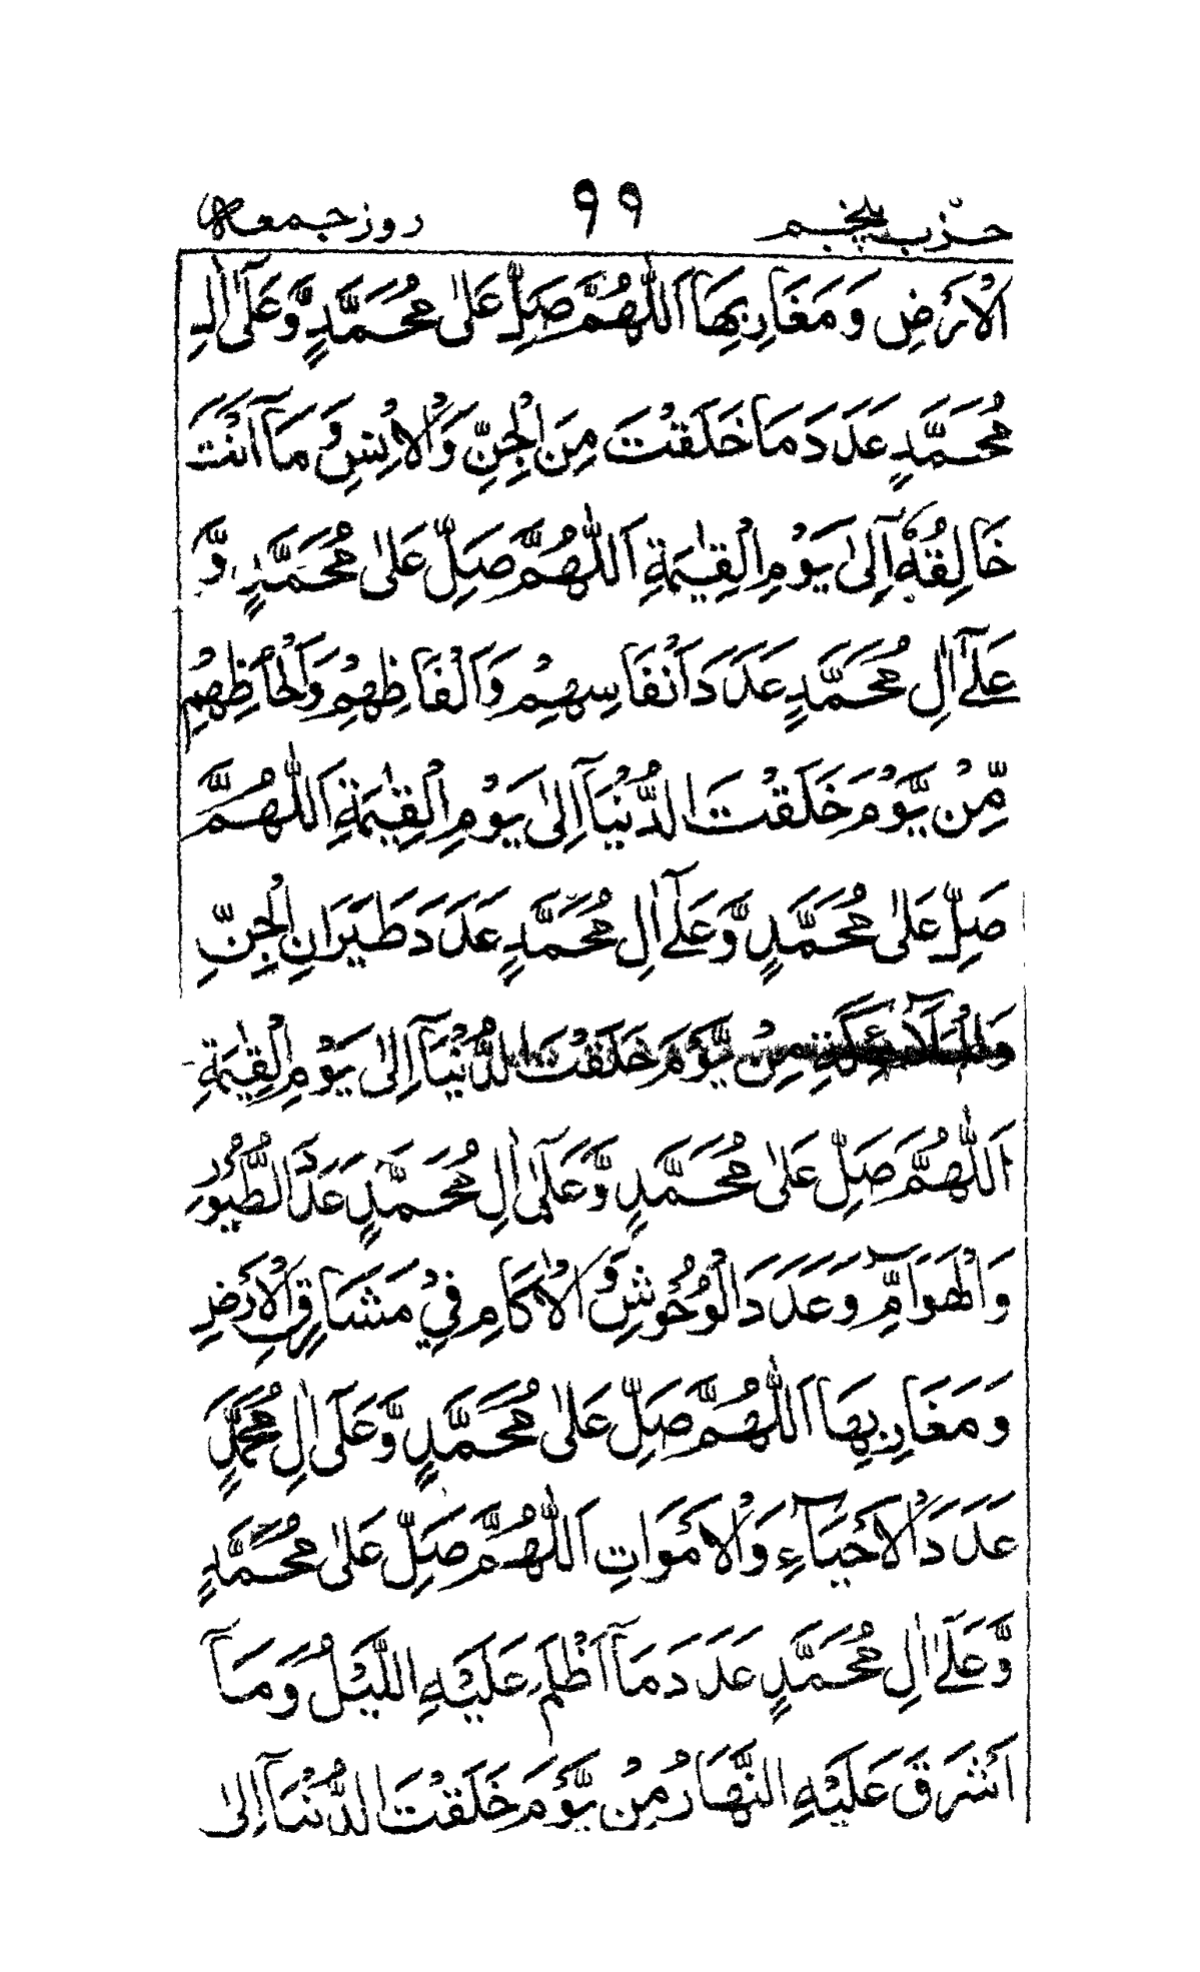 حزب پنجم ۹۹ روز جمعه
الْاَرْضِ وَمَغَارِبِهَا اَللّٰهُمَّ صَلِّ عَلٰى مُحَمَّدٍ وَّعَلٰٓى اٰلِ
مُحَمَّدٍ عَدَدَ مَا خَلَقْتَ مِنَ الْجِنِّ وَالْاِنْسِ وَمَآ اَنْتَ
خَالِقُهٗٓ اِلٰى يَوْمِ الْقِيٰمَةِ اَللّٰهُمَّ صَلِّ عَلٰى مُحَمَّدٍ وَّ
عَلٰٓى اٰلِ مُحَمَّدٍ عَدَدَ اَنْفَاسِهِمْ وَاَلْفَاظِهِمْ وَاَلْحَاظِهِمْ
مِّنْ يَّوْمَ خَلَقْتَ الدُّنْيَآ اِلٰى يَوْمِ الْقِيٰمَةِ اَللّٰهُمَّ
صَلِّ عَلٰى مُحَمَّدٍ وَّعَلٰٓى اٰلِ مُحَمَّدٍ عَدَدَ طَيَرَانِ الْجِنِّ
وَالْمَلَآئِكَةِ مِنْ يَّوْمَ خَلَقْتَ الدُّنْيَآ اِلٰى يَوْمِ الْقِيٰمَةِ
اَللّٰهُمَّ صَلِّ عَلٰى مُحَمَّدٍ وَّعَلٰٓى اٰلِ مُحَمَّدٍ عَدَدَ الطُّيُوْرِ
وَالْهَوَآمِّ وَعَدَدَ الْوُحُوْشِ وَالْاٰكَامِ فِيْ مَشَارِقِ الْاَرْضِ
وَمَغَارِبِهَا اَللّٰهُمَّ صَلِّ عَلٰى مُحَمَّدٍ وَّعَلٰٓى اٰلِ مُحَمَّدٍ
عَدَدَ الْاَحْيَآءِ وَالْاَمْوَاتِ اَللّٰهُمَّ صَلِّ عَلٰى مُحَمَّدٍ
وَّعَلٰٓى اٰلِ مُحَمَّدٍ عَدَدَ مَآ اَظْلَمَ عَلَيْهِ اللَّيْلُ وَمَآ
اَشْرَقَ عَلَيْهِ النَّهَارُ مِنْ يَّوْمَ خَلَقْتَ الدُّنْيَآ اِلٰى